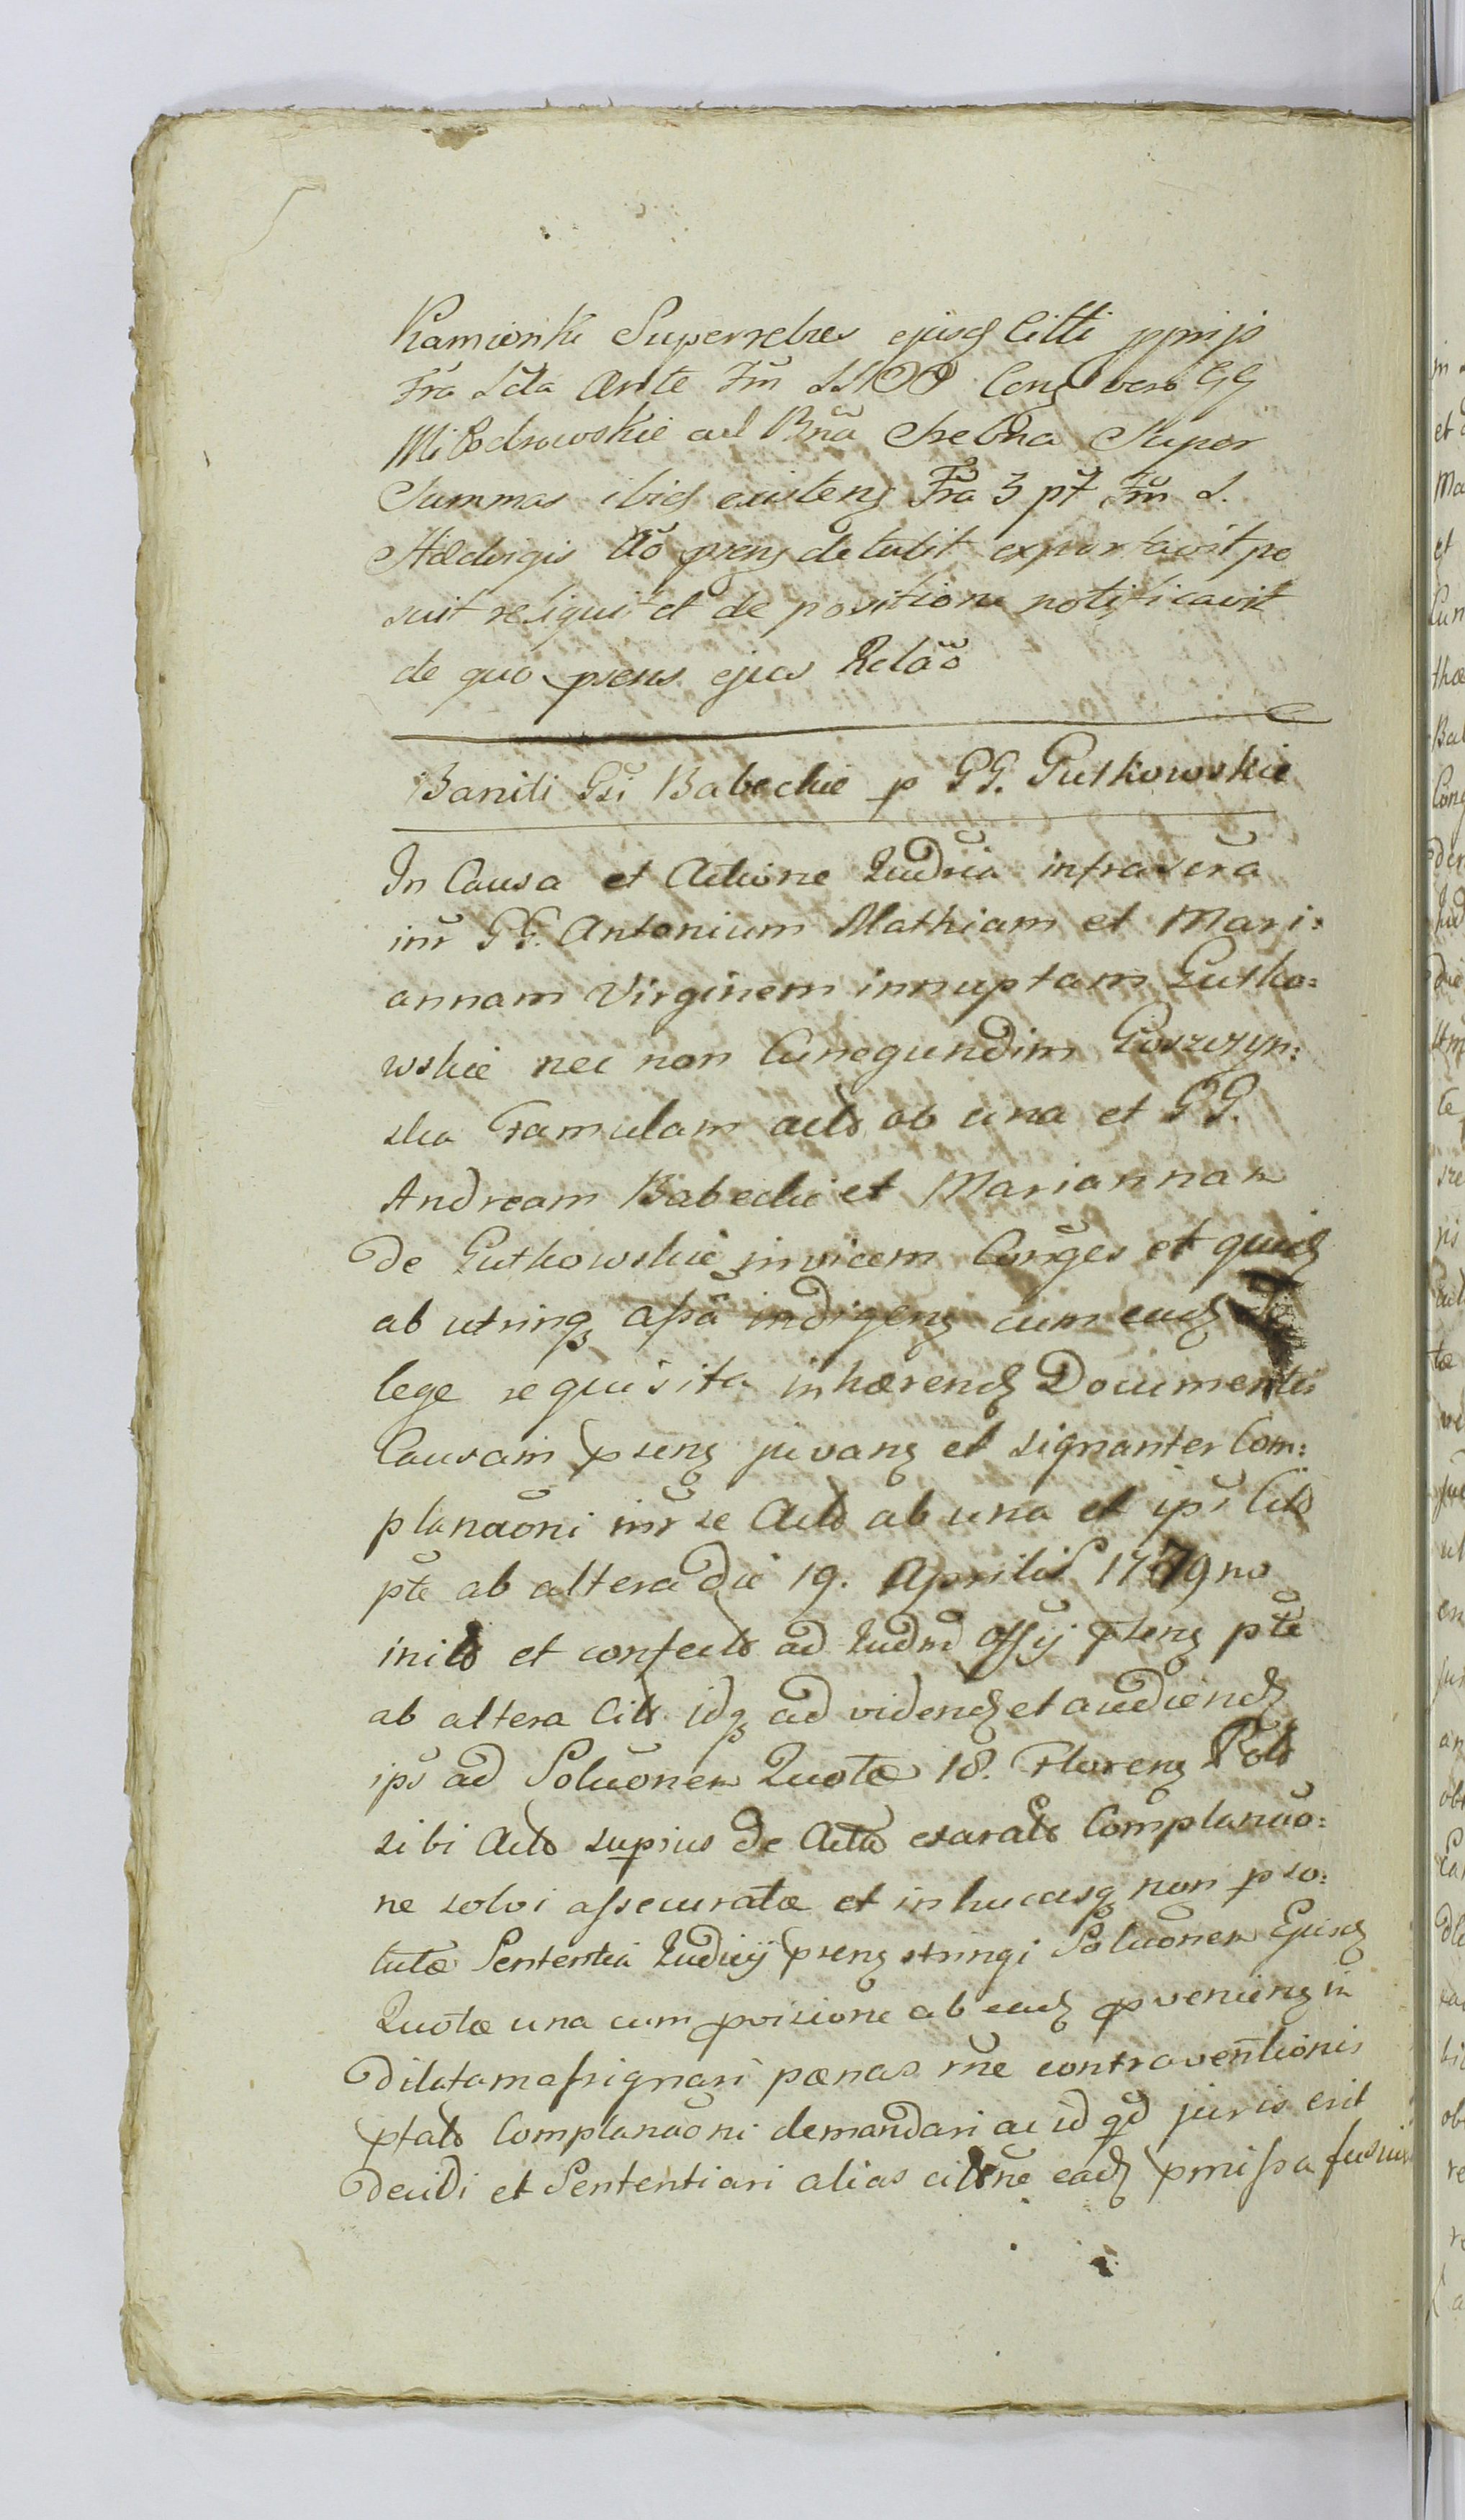 Kamionki Superrebes ejusd Citti ppnijs
Fra 2da Ante Fm SSOO Cong vero GG
Miłodrowskie ad Bna Srebna Super
Summas ibid existeng Fra 3 pt Fm S.
Hedvigis Ao pseng detulit exportavit po
suit reliquit et de positione notificavit
de quo psens ejus Relao
Baniti Gsi Babeckie p GG. Gutkowskie
In Causa et Actione Judria infrascra
inr GG. Antonium Mathiam et Mari:
annam Virginem innuptam Gutko:
wskie nec non Cunegundim Goszczyn:
ska Famulam acts ab una et GG.
Andream Babecki et Mariannam
de Gutkowskie invicem Conges et quid
ab utrinq apa indigeng cum eisd
lege requisita inhærend Documentis
Causam pseng juvang et signanter Com:
planaoni inr se Acts ab una et ips Cits
pte ab altera die 19. Aprilis 1779no
inits et confects ad Judm Offij pseng pte
ab altera Cits idq ad vidend et audiend
ips ad Soluonem Quotæ 18. Floreng Pols
sibi Acts supius de Actu exarats Complanao:
ne solvi assecuratæ et in hucusq non pso:
lutæ Sententia Judicij pseng stringi Soluonem Ejusd
Quotæ una cum pvisione ab ead pvenieng in
dilatam assignari pænas rne contraventionis
ptats Complanaoni demandari ac id qd juris erit
decidi et Sententiari alias citone ead pmissa fusius